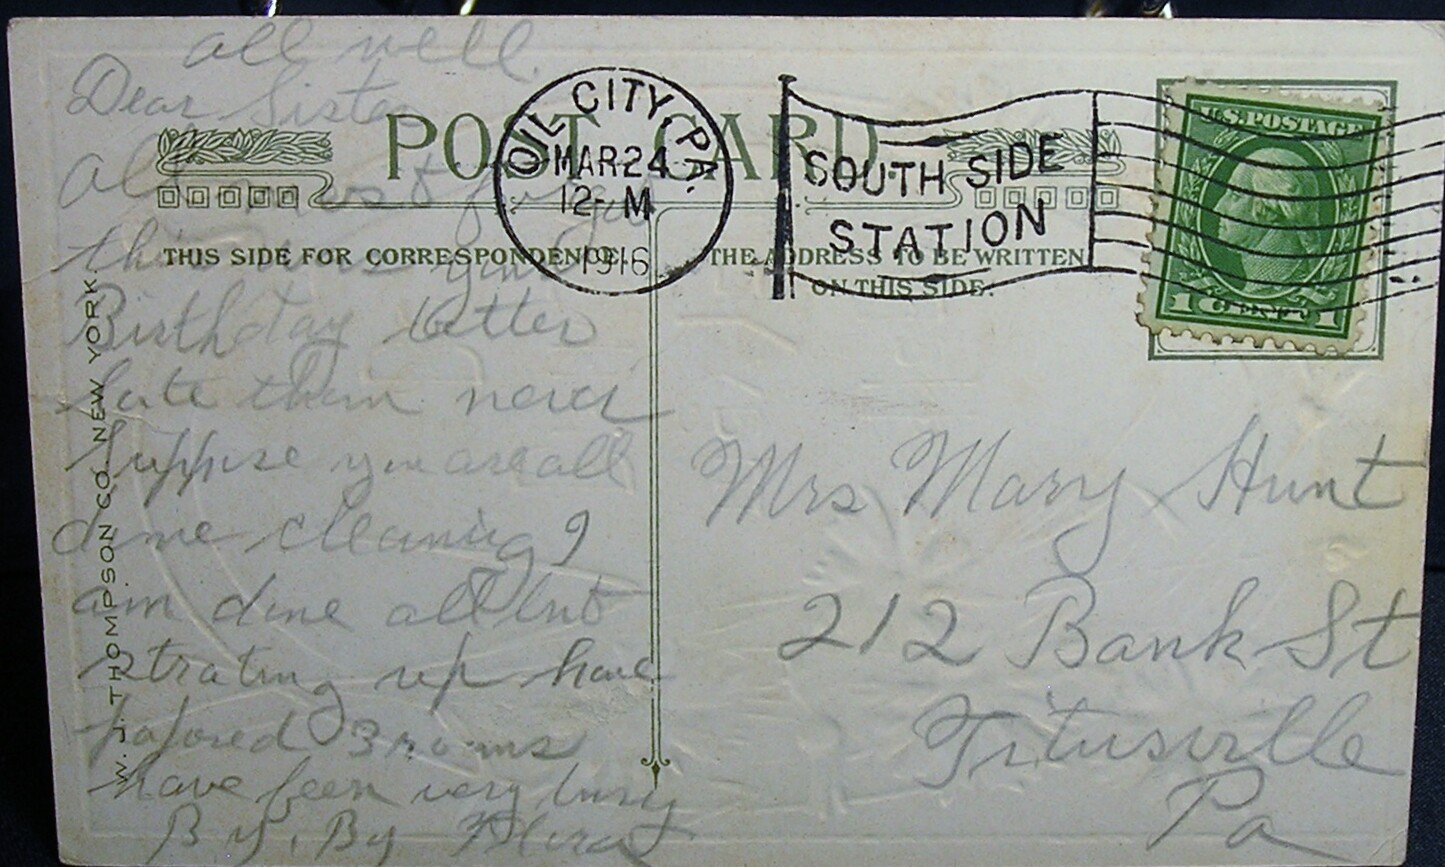 all well.
Dear Sister
all most forgot
this was your
Birthday better
late than never
Suppose you are all
done cleaning I
am done all but
strating up have
papored 3 rooms
have been very busy
By, By
POST CARD
THIS SIDE FOR CORRESPONDENCE.
THE ADDRESS TO BE WRITTEN
ON THIS SIDE.
OIL CITY, PA.
MAR 24
12-M
1916
SOUTH SIDE
STATION
U.S. POSTAGE
1 CENT 1
Mrs Mary Hunt
212 Bank St
Titusville
Pa
W. J. THOMPSON CO. NEW YORK.